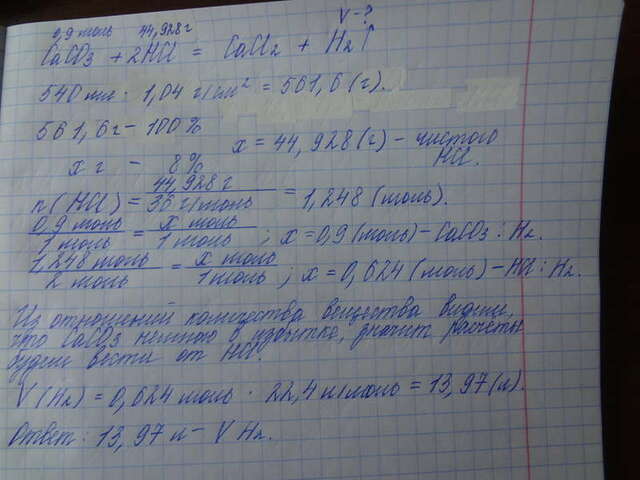 V-?
0,9 моль 44,928г
CaCO3 + 2HCl = CaCl2 + H2↑
540 мл · 1,04 г/см² = 561,6 (г).
561,6г - 100%
x г - 8% x = 44,928 (г) - чистого HCl.
n(HCl) = 44,928 г / 36 г/моль = 1,248 (моль).
0,9 моль / 1 моль = x моль / 1 моль ; x = 0,9 (моль) - CaCO3 : H2.
1,248 моль / 2 моль = x моль / 1 моль ; x = 0,624 (моль) - HCl : H2.
Из отношений количества вещества видим,
что CaCO3 немного в избытке, значит расчёты
будем вести от HCl.
V(H2) = 0,624 моль · 22,4 л/моль = 13,97 (л).
Ответ: 13,97 л - V H2.